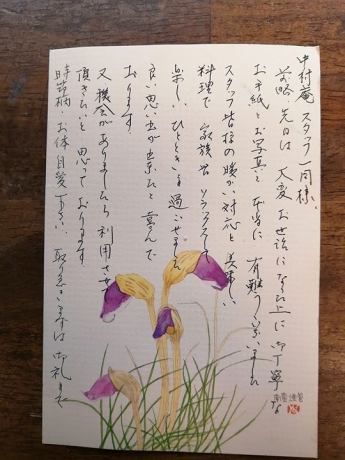 中村庵 スタッフ一同様
前略 先日は 大変 お世話になった上に御丁寧な
お手紙とお写真と 本当に 有難うございました
スタッフ皆様の暖かい対応と 美味しい
料理で 家族皆 リラックスして
楽しいひとときを過ごせました
良い思い出が出来たと 喜んで
おります
又 機会がありましたら利用させて
頂きたいと 思っております
時節柄・お体自愛下さい 取り急ぎますは 御礼まで